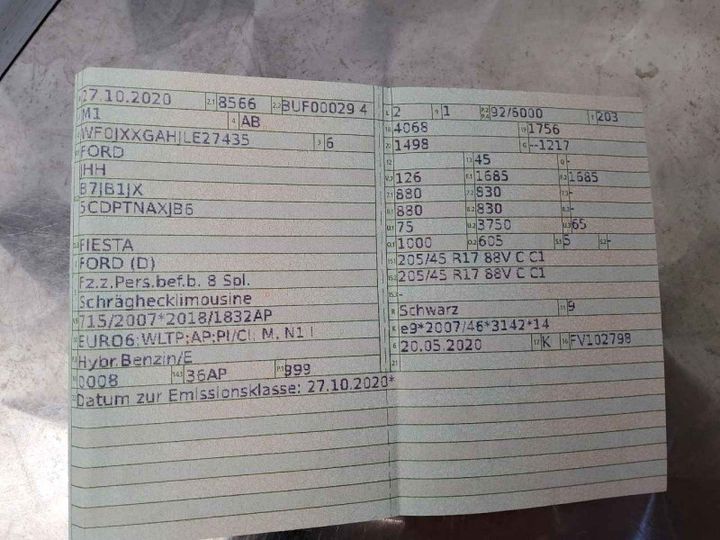 27.10.2020 2.1 8566 2.2 BUF00029 4
M1 4 AB
WF0JXXGAHJLE27435 3 6
FORD
JHH
B7JB1JX
5CDPTNAXJB6
FIESTA
FORD (D)
Fz.z.Pers.bef.b. 8 Spl.
Schräghecklimousine
715/2007*2018/1832AP
EURO6;WLTP;AP;PI/CI; M, N1 I
Hybr.Benzin/E
0008 14.1 36AP P.1 999
Datum zur Emissionsklasse: 27.10.2020*
L 2 9 1 P.2 P.4 92/6000 T 203
18 4068 19 1756
20 1498 G --1217
12 - 13 45 Q -
V.7 126 F.1 1685 F.2 1685
7.1 880 7.2 830 7.3 -
8.1 880 8.2 830 8.3 -
U.1 75 U.2 3750 U.3 65
O.1 1000 O.2 605 S.1 5 S.2 -
15.1 205/45 R17 88V C C1
15.2 205/45 R17 88V C C1
15.3 -
R Schwarz 11 9
K e9*2007/46*3142*14
6 20.05.2020 17 K 16 FV102798
21